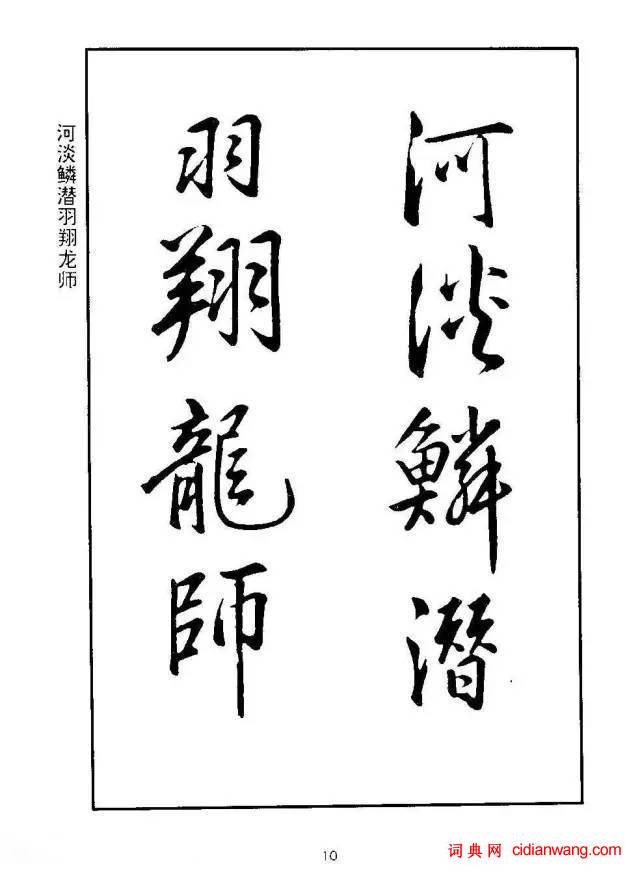 河淡鳞潜羽翔龙师
河淡鱗潛
羽翔龍師
10
词典网 cidianwang.com